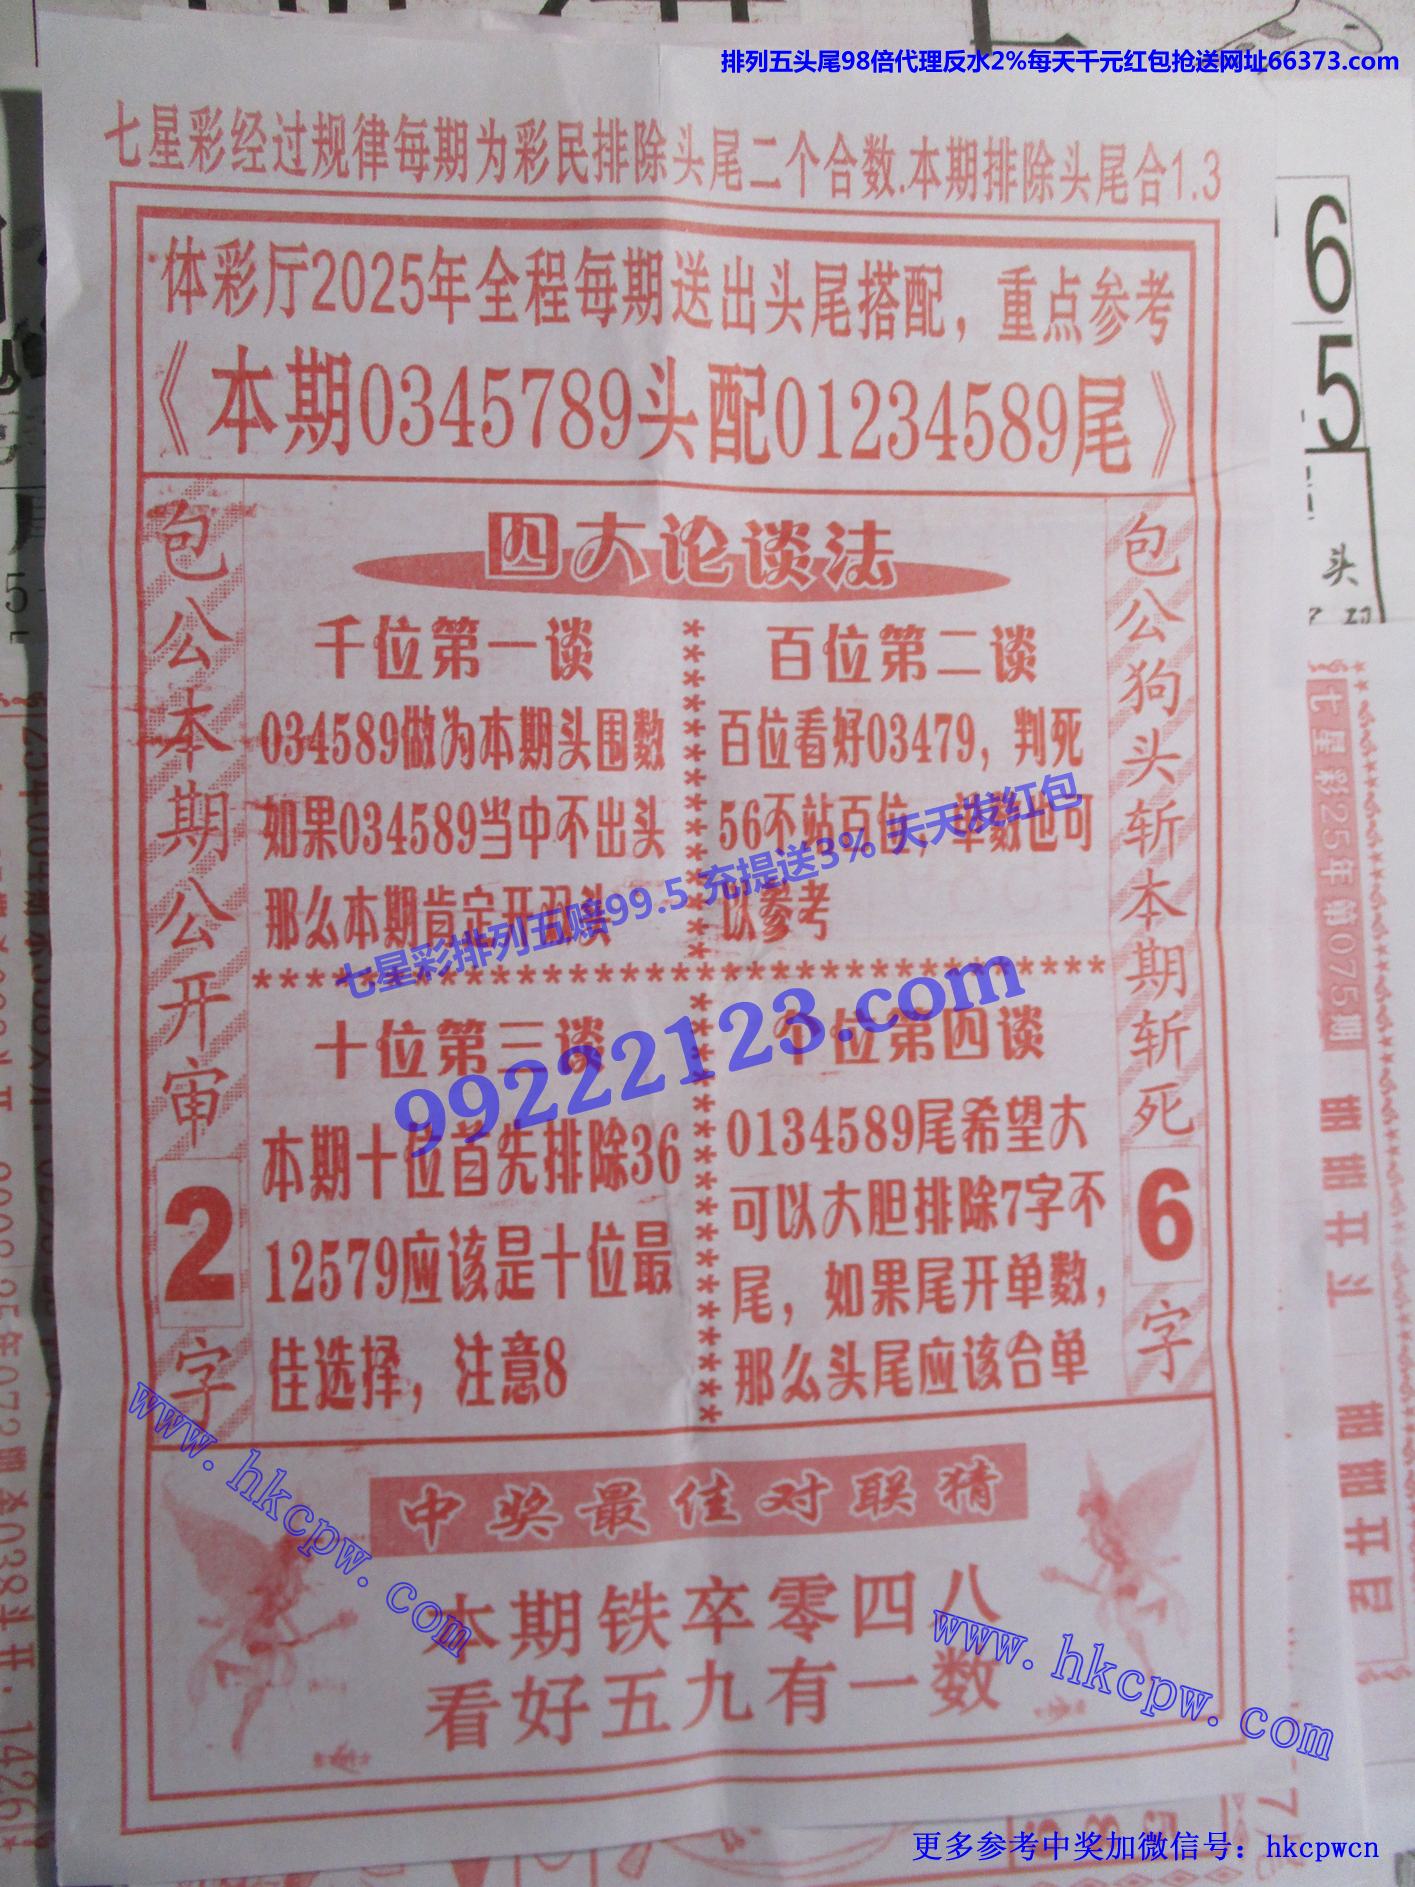 排列五头尾98倍代理反水2%每天千元红包抢送网址66373.com
七星彩经过规律每期为彩民排除头尾二个合数.本期排除头尾合1.3
体彩厅2025年全程每期送出头尾搭配，重点参考
《本期0345789头配01234589尾》
包公本期公开审2字
四大论谈法
千位第一谈
034589做为本期头围数
如果034589当中不出头
那么本期肯定开双头
百位第二谈
百位看好03479，判死
56不站百位，单数也可
以参考
十位第三谈
本期十位首先排除36
12579应该是十位最
佳选择，注意8
个位第四谈
0134589尾希望大
可以大胆排除7字不
尾，如果尾开单数，
那么头尾应该合单
包公狗头斩本期斩死6字
七星彩排列五赔99.5 充提送3% 天天发红包
99222123.com
中奖最佳对联猜
本期铁卒零四八
看好五九有一数
www.hkcpw.com
www.hkcpw.com
65
头
七星彩25年第075期
更多参考中奖加微信号：hkcpwcn